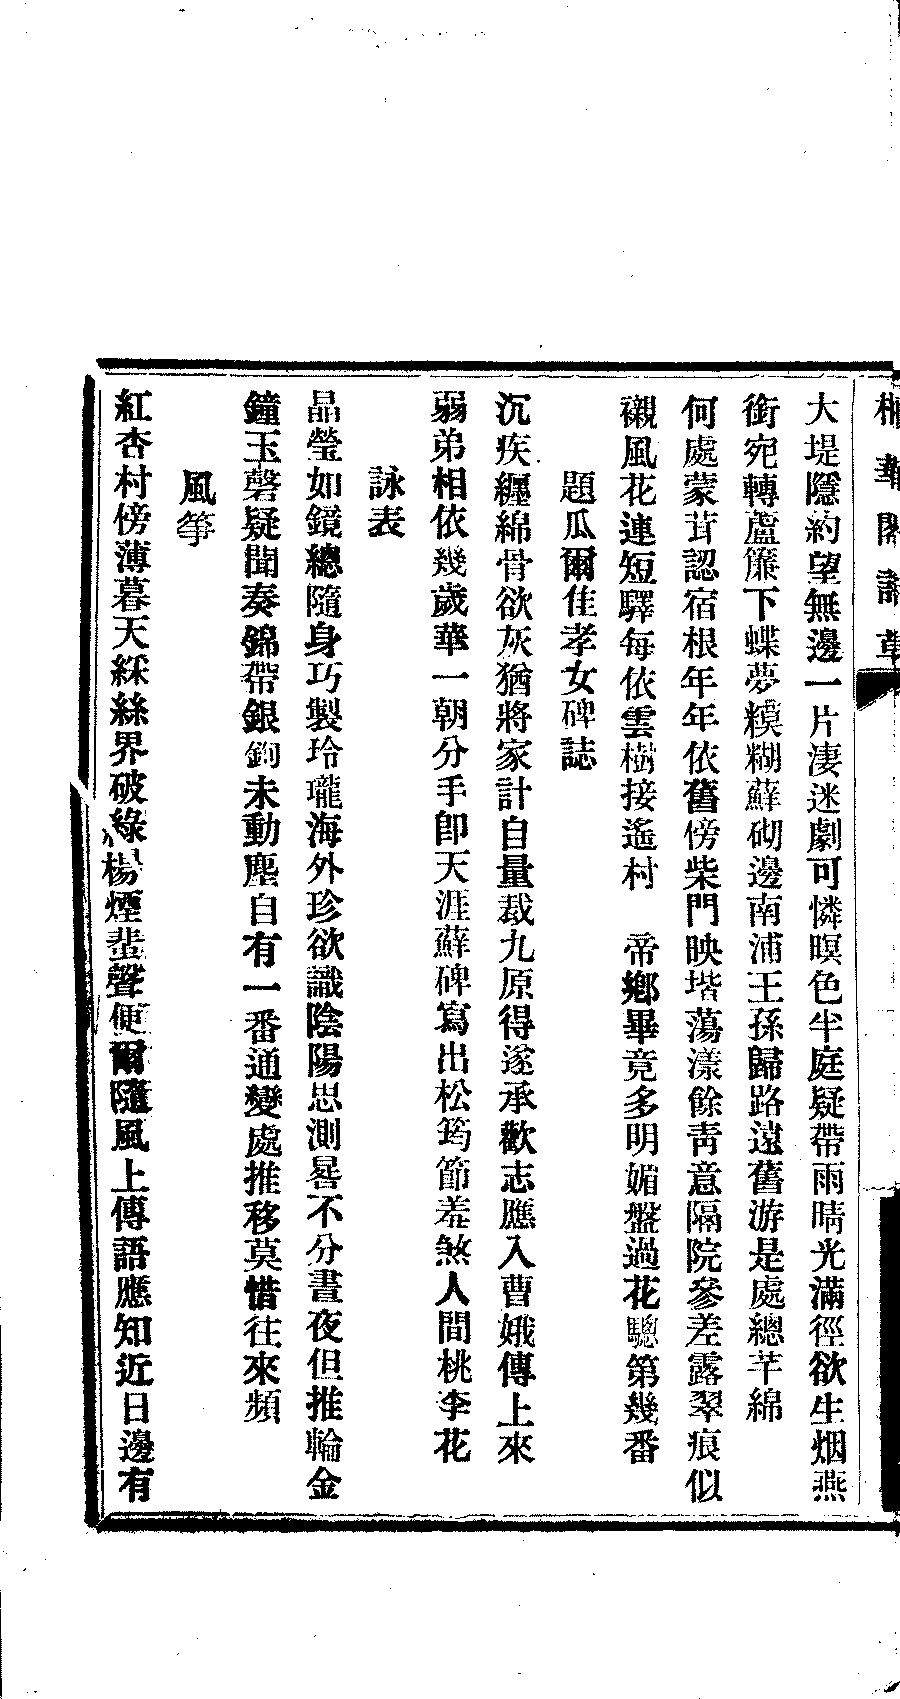 華閣詩草
大堤隱約望無邊一片淒迷劇可憐暝色半庭疑帶雨晴光滿徑欲生烟燕
銜宛轉蘆簾下蝶夢糢糊蘚砌邊南浦王孫歸路遠舊游是處總芊綿
何處蒙茸認宿根年年依舊傍柴門映堦蕩漾餘靑意隔院參差露翠痕似
襯風花連短驛每依雲樹接遙村　帝鄉畢竟多明媚盤過花驄第幾番
題瓜爾佳孝女碑誌
沉疾纏綿骨欲灰猶將家計自量裁九原得遂承歡志應入曹娥傳上來
弱弟相依幾歲華一朝分手卽天涯蘚碑寫出松筠節羞煞人間桃李花
詠表
晶瑩如鏡總隨身巧製玲瓏海外珍欲識陰陽思測晷不分晝夜但推輪金
鐘玉磬疑聞奏錦帶銀鉤未動塵自有一番通變處推移莫惜往來頻
風箏
紅杏村傍薄暮天綵絲界破綠楊煙蜚聲便爾隨風上傳語應知近日邊有